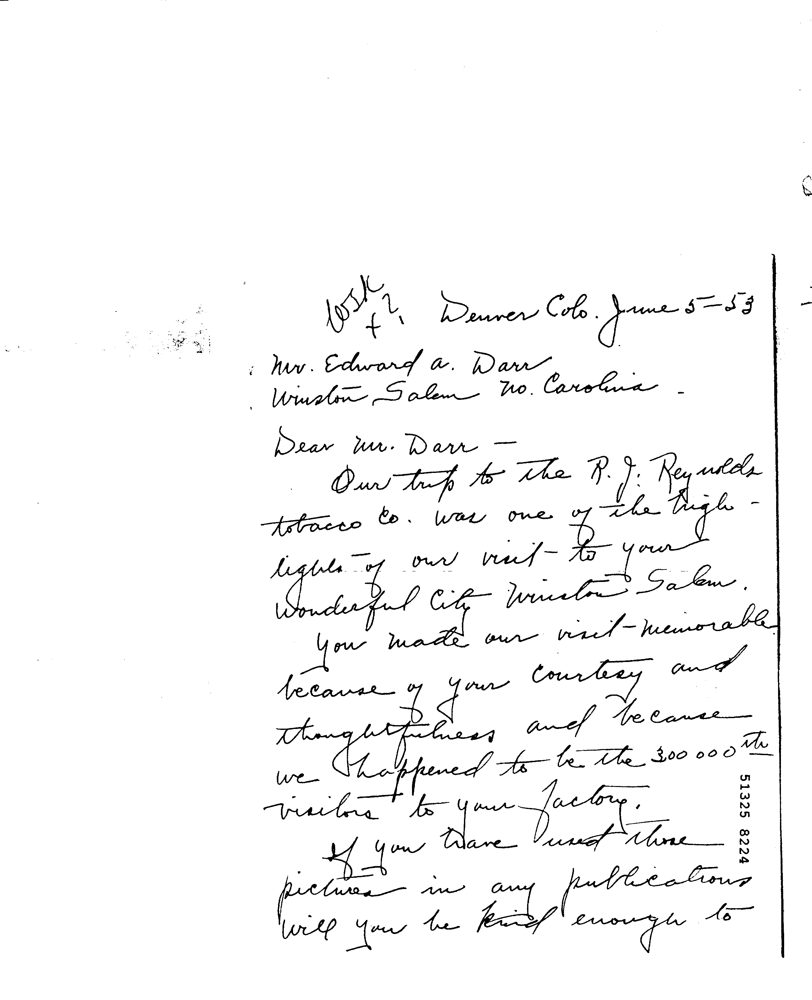 Denver Colo. June 5-53
Mr. Edward A. Darr
Winston Salem No. Carolina -
Dear Mr. Darr -
Our trip to the R. J. Reynolds
tobacco Co. was one of the high-
lights of our visit to your
wonderful City Winston Salem.
You made our visit memorable
because of your courtesy and
thoughtfulness and because
we happened to be the 300000th
visitors to your factory.
If you have used those
pictures in any publications
will you be kind enough to
51325 8224